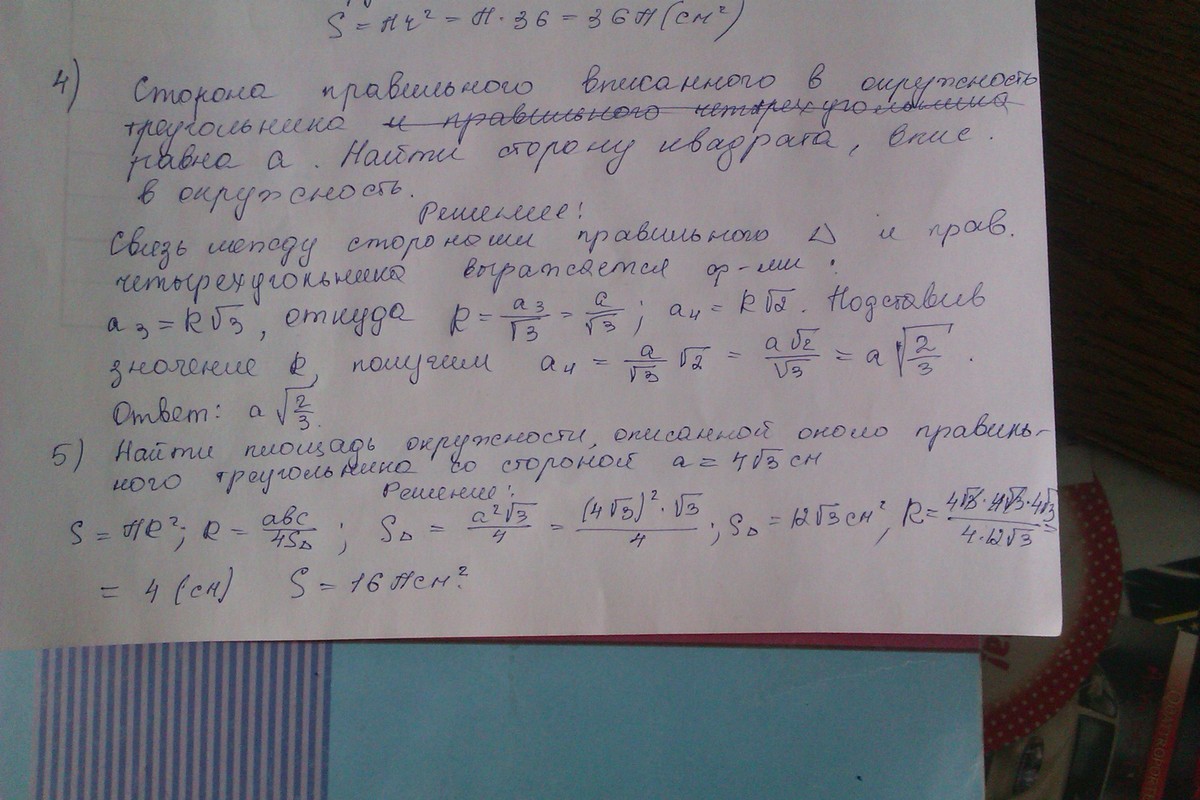 S = πr² = π · 36 = 36π (см²)
4) Сторона правильного вписанного в окружность
треугольника и правильного четырехугольника
равна a. Найти сторону квадрата, впис.
в окружность.
Решение:
Связь между сторонами правильного Δ и прав.
четырехугольника выражается ф-ми:
a₃ = R√3, откуда R = a₃/√3 = a/√3; a₄ = R√2. Подставив
значение R, получим a₄ = a/√3 √2 = a√2/√3 = a√(2/3).
Ответ: a√(2/3).
5) Найти площадь окружности, описанной около правиль-
ного треугольника со стороной a = 4√3 см
Решение:
S = πR²; R = abc/4S_Δ; S_Δ = a²√3/4 = (4√3)²·√3/4; S_Δ = 12√3 см², R = 4√3·4√3·4√3/4·12√3 =
= 4 (см) S = 16π см².
а!